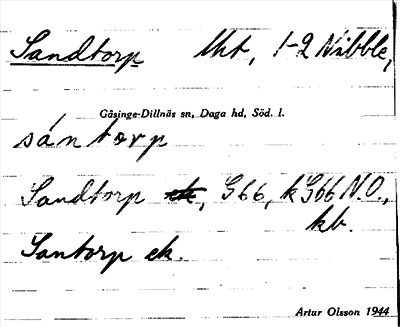 Sandtorp lht, 1-2 Nibble,
Gåsinge-Dillnäs sn, Daga hd, Söd. l.
sán torp
Sandtorp, G 66, k G66 N.O.,
kb.
Santorp ek.
Artur Olsson 1944